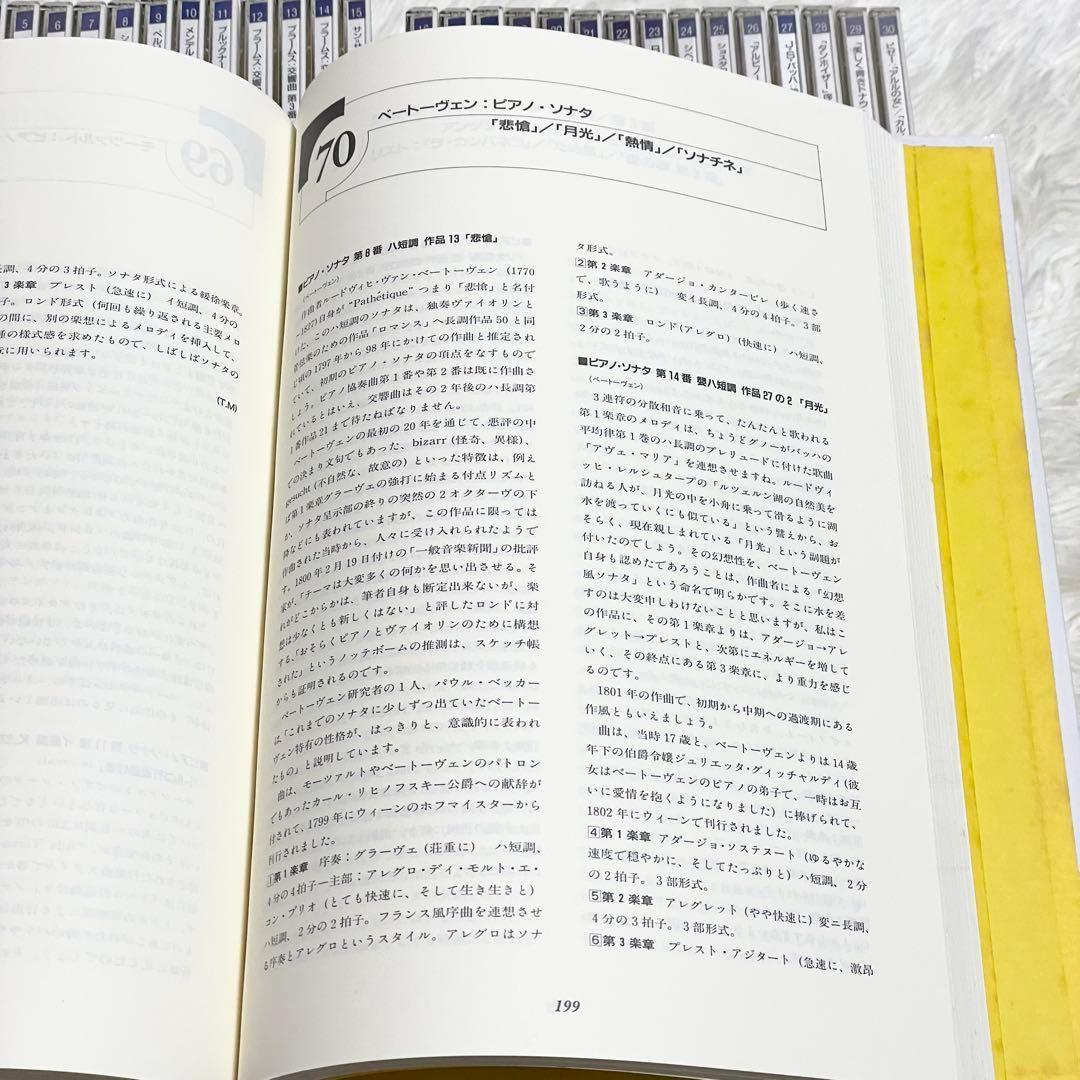 5
6
7
8
9
10
11
12
13
14
15
メンデル
ブルックナー
ブラームス:交響
ブラームス:交響曲 第3番
ブラームス:交
サン=サ
22
23
24
25
26
27
28
29
30
シベ
ショスタ
「アルビノ
J・S・バッハ
「タンホイザー」序
「美しく青きドナウ
ビゼー:「アルルの女」/「カル
69
モーツァルト:ピアノ
長調、4分の3拍子。ソナタ形式による緩徐楽章。
3楽章 プレスト(急速に) イ短調、4分の
子。ロンド形式(何回も繰り返される主要メロ
の間に、別の楽想によるメロディを挿入して、
種の様式感を求めたもので、しばしばソナタの
に用いられます。
(T.M)
70
ベートーヴェン:ピアノ・ソナタ
「悲愴」/「月光」/「熱情」/「ソナチネ」
■ピアノ・ソナタ 第8番 ハ短調 作品13「悲愴」
(ベートーヴェン)
作曲者ルードヴィヒ・ヴァン・ベートーヴェン(1770
〜1827)自身が“Pathétique”つまり「悲愴」と名付
けた、このハ短調のソナタは、独奏ヴァイオリンと
管弦楽のための作品「ロマンス」ヘ長調作品50と同
じ頃の1797年から98年にかけての作曲と推定され
ていて、初期のピアノ・ソナタの頂点をなすもので
しょう。ピアノ協奏曲第1番や第2番は既に作曲さ
れているとはいえ、交響曲はその2年後のハ長調第
1番作品21まで待たねばなりません。
ベートーヴェンの最初の20年を通じて、悪評の中
での決まり文句でもあった、bizarr(怪奇、異様)、
gesucht(不自然な、故意の)といった特徴は、例え
ば第1楽章グラーヴェの強打に始まる付点リズムと
か、ソナタ呈示部の終りの突然の2オクターヴの下
降などにも表われていますが、この作品に限っては
作曲された当時から、人々に受け入れられたようで
す。1800年2月19日付けの「一般音楽新聞」の批評
家が、「テーマは大変多くの何かを思い出させる。そ
れがどこからかは、筆者自身も断定出来ないが、楽
想は少なくとも新しくはない」と評したロンドに対
する、「おそらくピアノとヴァイオリンのために構想
された」というノッテボームの推測は、スケッチ帳
からも証明されるのです。
ベートーヴェン研究者の1人、パウル・ベッカー
は「これまでのソナタに少しずつ出ていたベートー
ヴェン特有の性格が、はっきりと、意識的に表われ
たもの」と説明しています。
曲は、モーツアルトやベートーヴェンのパトロン
でもあったカール・リヒノフスキー公爵への献辞が
付されて、1799年にウィーンのホフマイスターから
刊行されました。
1第1楽章 序奏:グラーヴェ(荘重に) ハ短調、
4分の4拍子―主部:アレグロ・ディ・モルト・エ・
コン・ブリオ(とても快速に、そして生き生きと)
ハ短調、2分の2拍子。フランス風序曲を連想させ
る序奏とアレグロというスタイル。アレグロはソナ
タ形式。
2第2楽章 アダージョ・カンタービレ(歩く速さ
で、歌うように) 変イ長調、4分の4拍子。3部
形式。
3第3楽章 ロンド(アレグロ)(快速に) ハ短調、
2分の2拍子。
■ピアノ・ソナタ 第14番 嬰ハ短調 作品27の2「月光」
(ベートーヴェン)
3連符の分散和音に乗って、たんたんと歌われる
第1楽章のメロディは、ちょうどグノーがバッハの
平均律第1巻のハ長調のプレリュードに付けた歌曲
「アヴェ・マリア」を連想させますね。ルードヴィ
ッヒ・レルシュタープの「ルツェルン湖の自然美を
訪ねる人が、月光の中を小舟に乗って滑るように湖
水を渡っていくにも似ている」という譬えから、お
そらく、現在親しまれている「月光」という副題が
付いたのでしょう。その幻想性を、ベートーヴェン
自身も認めたであろうことは、作曲者による「幻想
風ソナタ」という命名で明らかです。そこに水を差
すのは大変申しわけないことと思いますが、私はこ
の作品に、その第1楽章よりは、アダージョ→アレ
グレット→プレストと、次第にエネルギーを増して
いく、その終点にある第3楽章に、より重力を感じ
るのです。
1801年の作曲で、初期から中期への過渡期にある
作風ともいえましょう。
曲は、当時17歳と、ベートーヴェンよりは14歳
年下の伯爵令嬢ジュリエッタ・グィッチャルディ(彼
女はベートーヴェンのピアノの弟子で、一時はお互
いに愛情を抱くようになりました)に捧げられて、
1802年にウィーンで刊行されました。
4第1楽章 アダージョ・ソステヌート(ゆるやかな
速度で穏やかに、そしてたっぷりと)ハ短調、2分
の2拍子。3部形式。
5第2楽章 アレグレット(やや快速に)変ニ長調、
4分の3拍子。3部形式。
6第3楽章 プレスト・アジタート(急速に、激昂
199